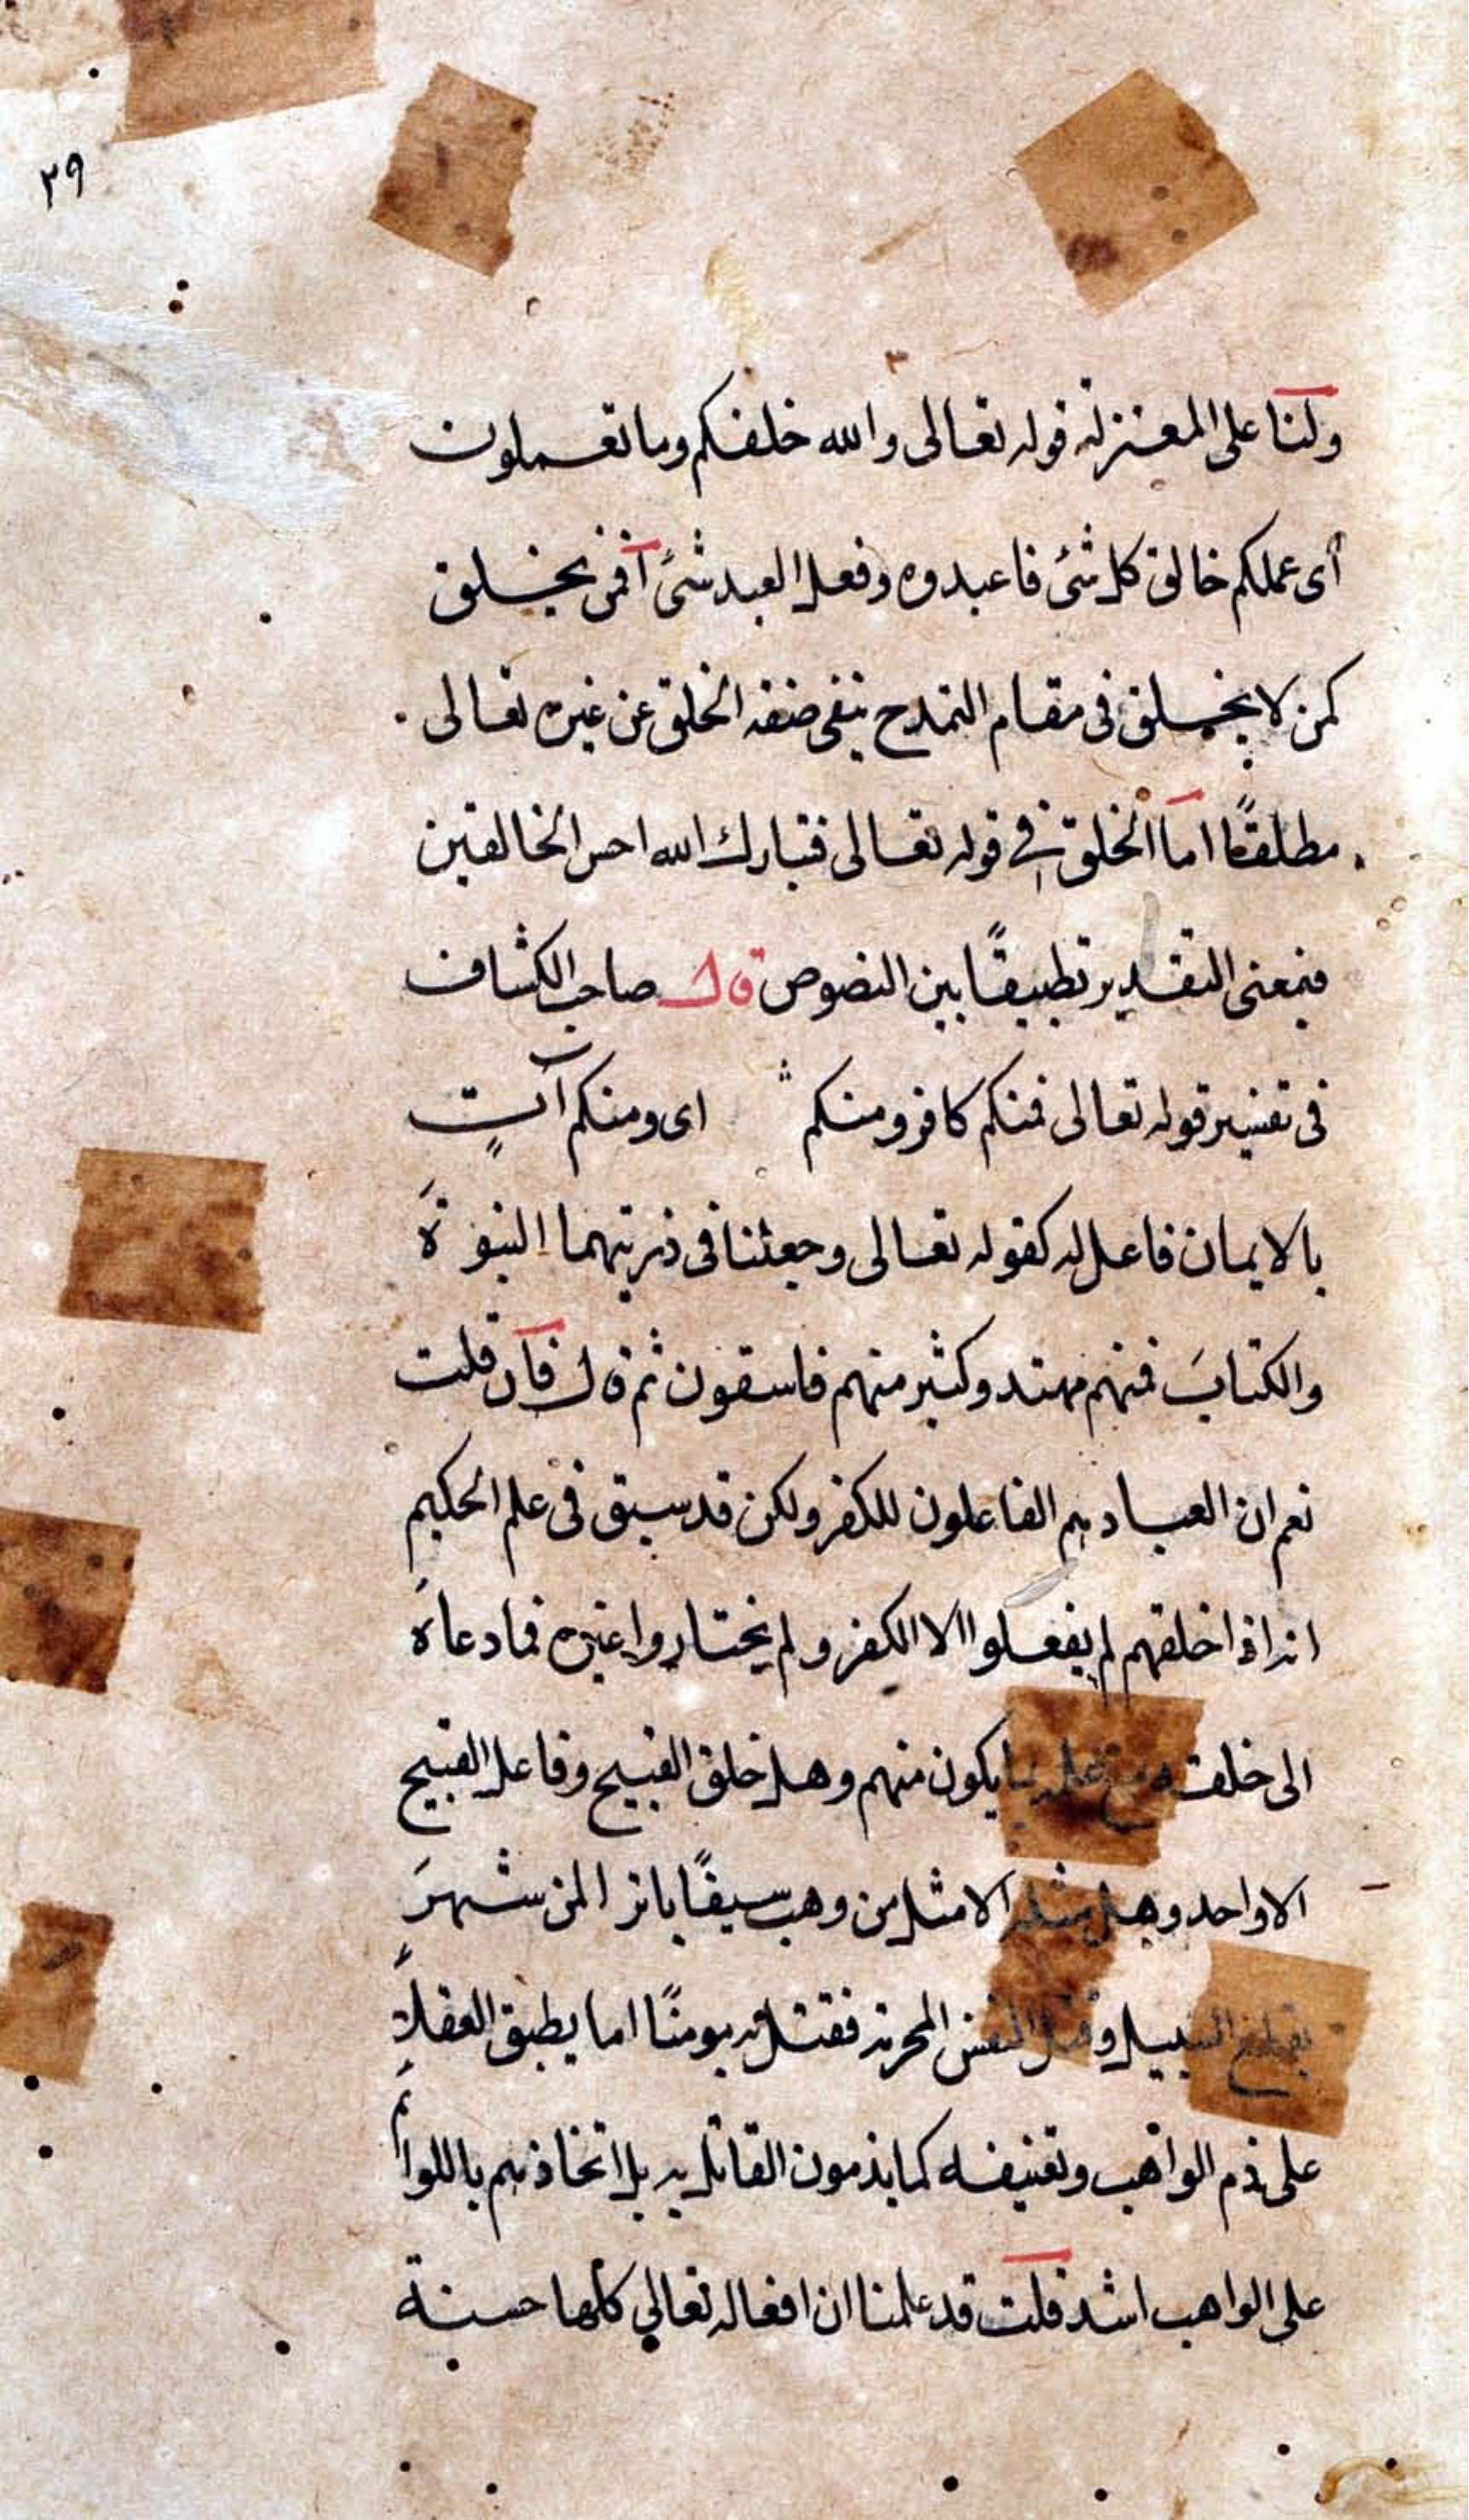 ٢٩
ولنا على المعتزلة قوله تعالى والله خلقكم وما تعملون
أى عملكم خالق كل شئ فاعبدوه وفعل العبد شئ أفمن يخلق
كمن لا يخلق فى مقام التمدح بنفى صفة الخلق عن غيره تعالى
مطلقًا اما الخلق فى قوله تعالى فتبارك الله احسن الخالقين
فبمعنى التقدير تطبيقًا بين النصوص قال صاحب الكشاف
فى تفسير قوله تعالى فمنكم كافر ومنكم اى ومنكم آتٍ
بالايمان فاعل له كقوله تعالى وجعلنا فى ذريتهما النبوةَ
والكتابَ فمنهم مهتد وكثير منهم فاسقون ثم قال فان قلت
نعم ان العباد هم الفاعلون للكفر ولكن قد سبق فى علم الحكيم
انه اذا خلقهم لم يفعلوا الا الكفر ولم يختاروا غيره فما دعاه
الى خلقهم مع علمه بما يكون منهم وهل خلق القبيح وفاعل القبيح
الا واحد وهل مثله الا مثل من وهب سيفًا باترا لمن شهرَ
بقطع السبيل وقتل النفس المحرمة فقتل به مومنًا اما يطبق العقلاءُ
على ذم الواهب وتعنيفه كما يذمون القاتل به بل انحاذهم باللوائم
على الواهب اشد قلت قد علمنا ان افعاله تعالي كلها حسنة